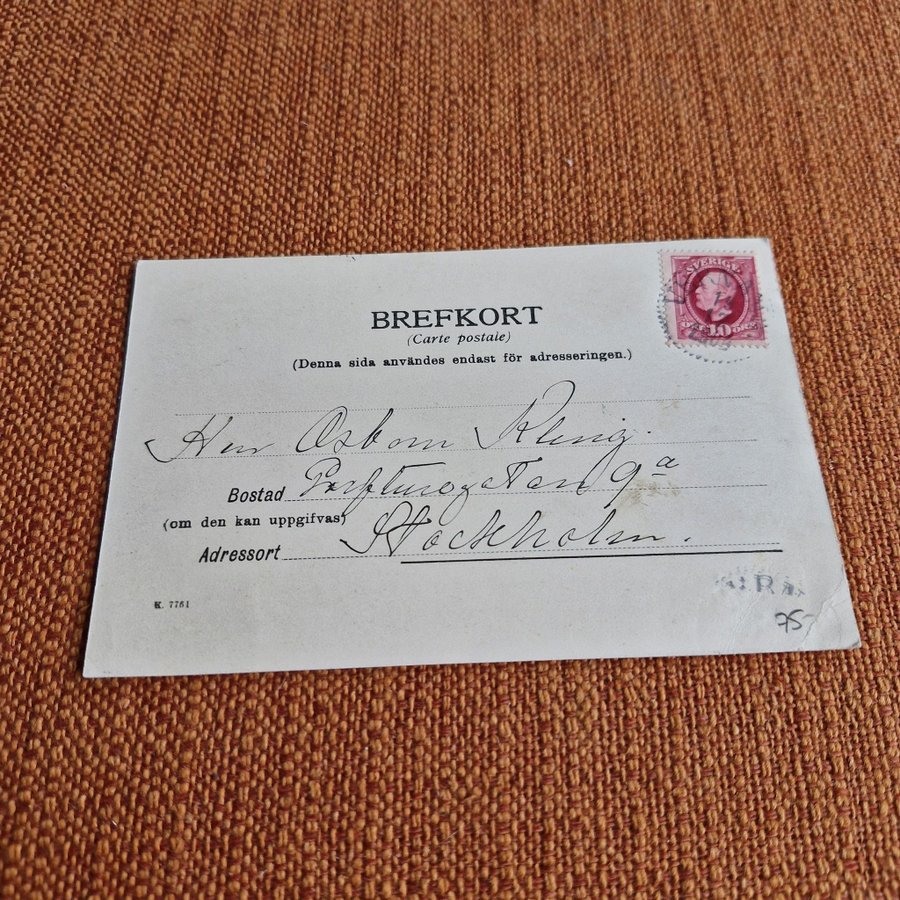 SVERIGE
10
ÖRE
BREFKORT
(Carte postale)
(Denna sida användes endast för adresseringen.)
Herr Osborn Kling.
Bostad 9a
(om den kan uppgifvas)
Adressort Stockholm.
K. 7761
75-